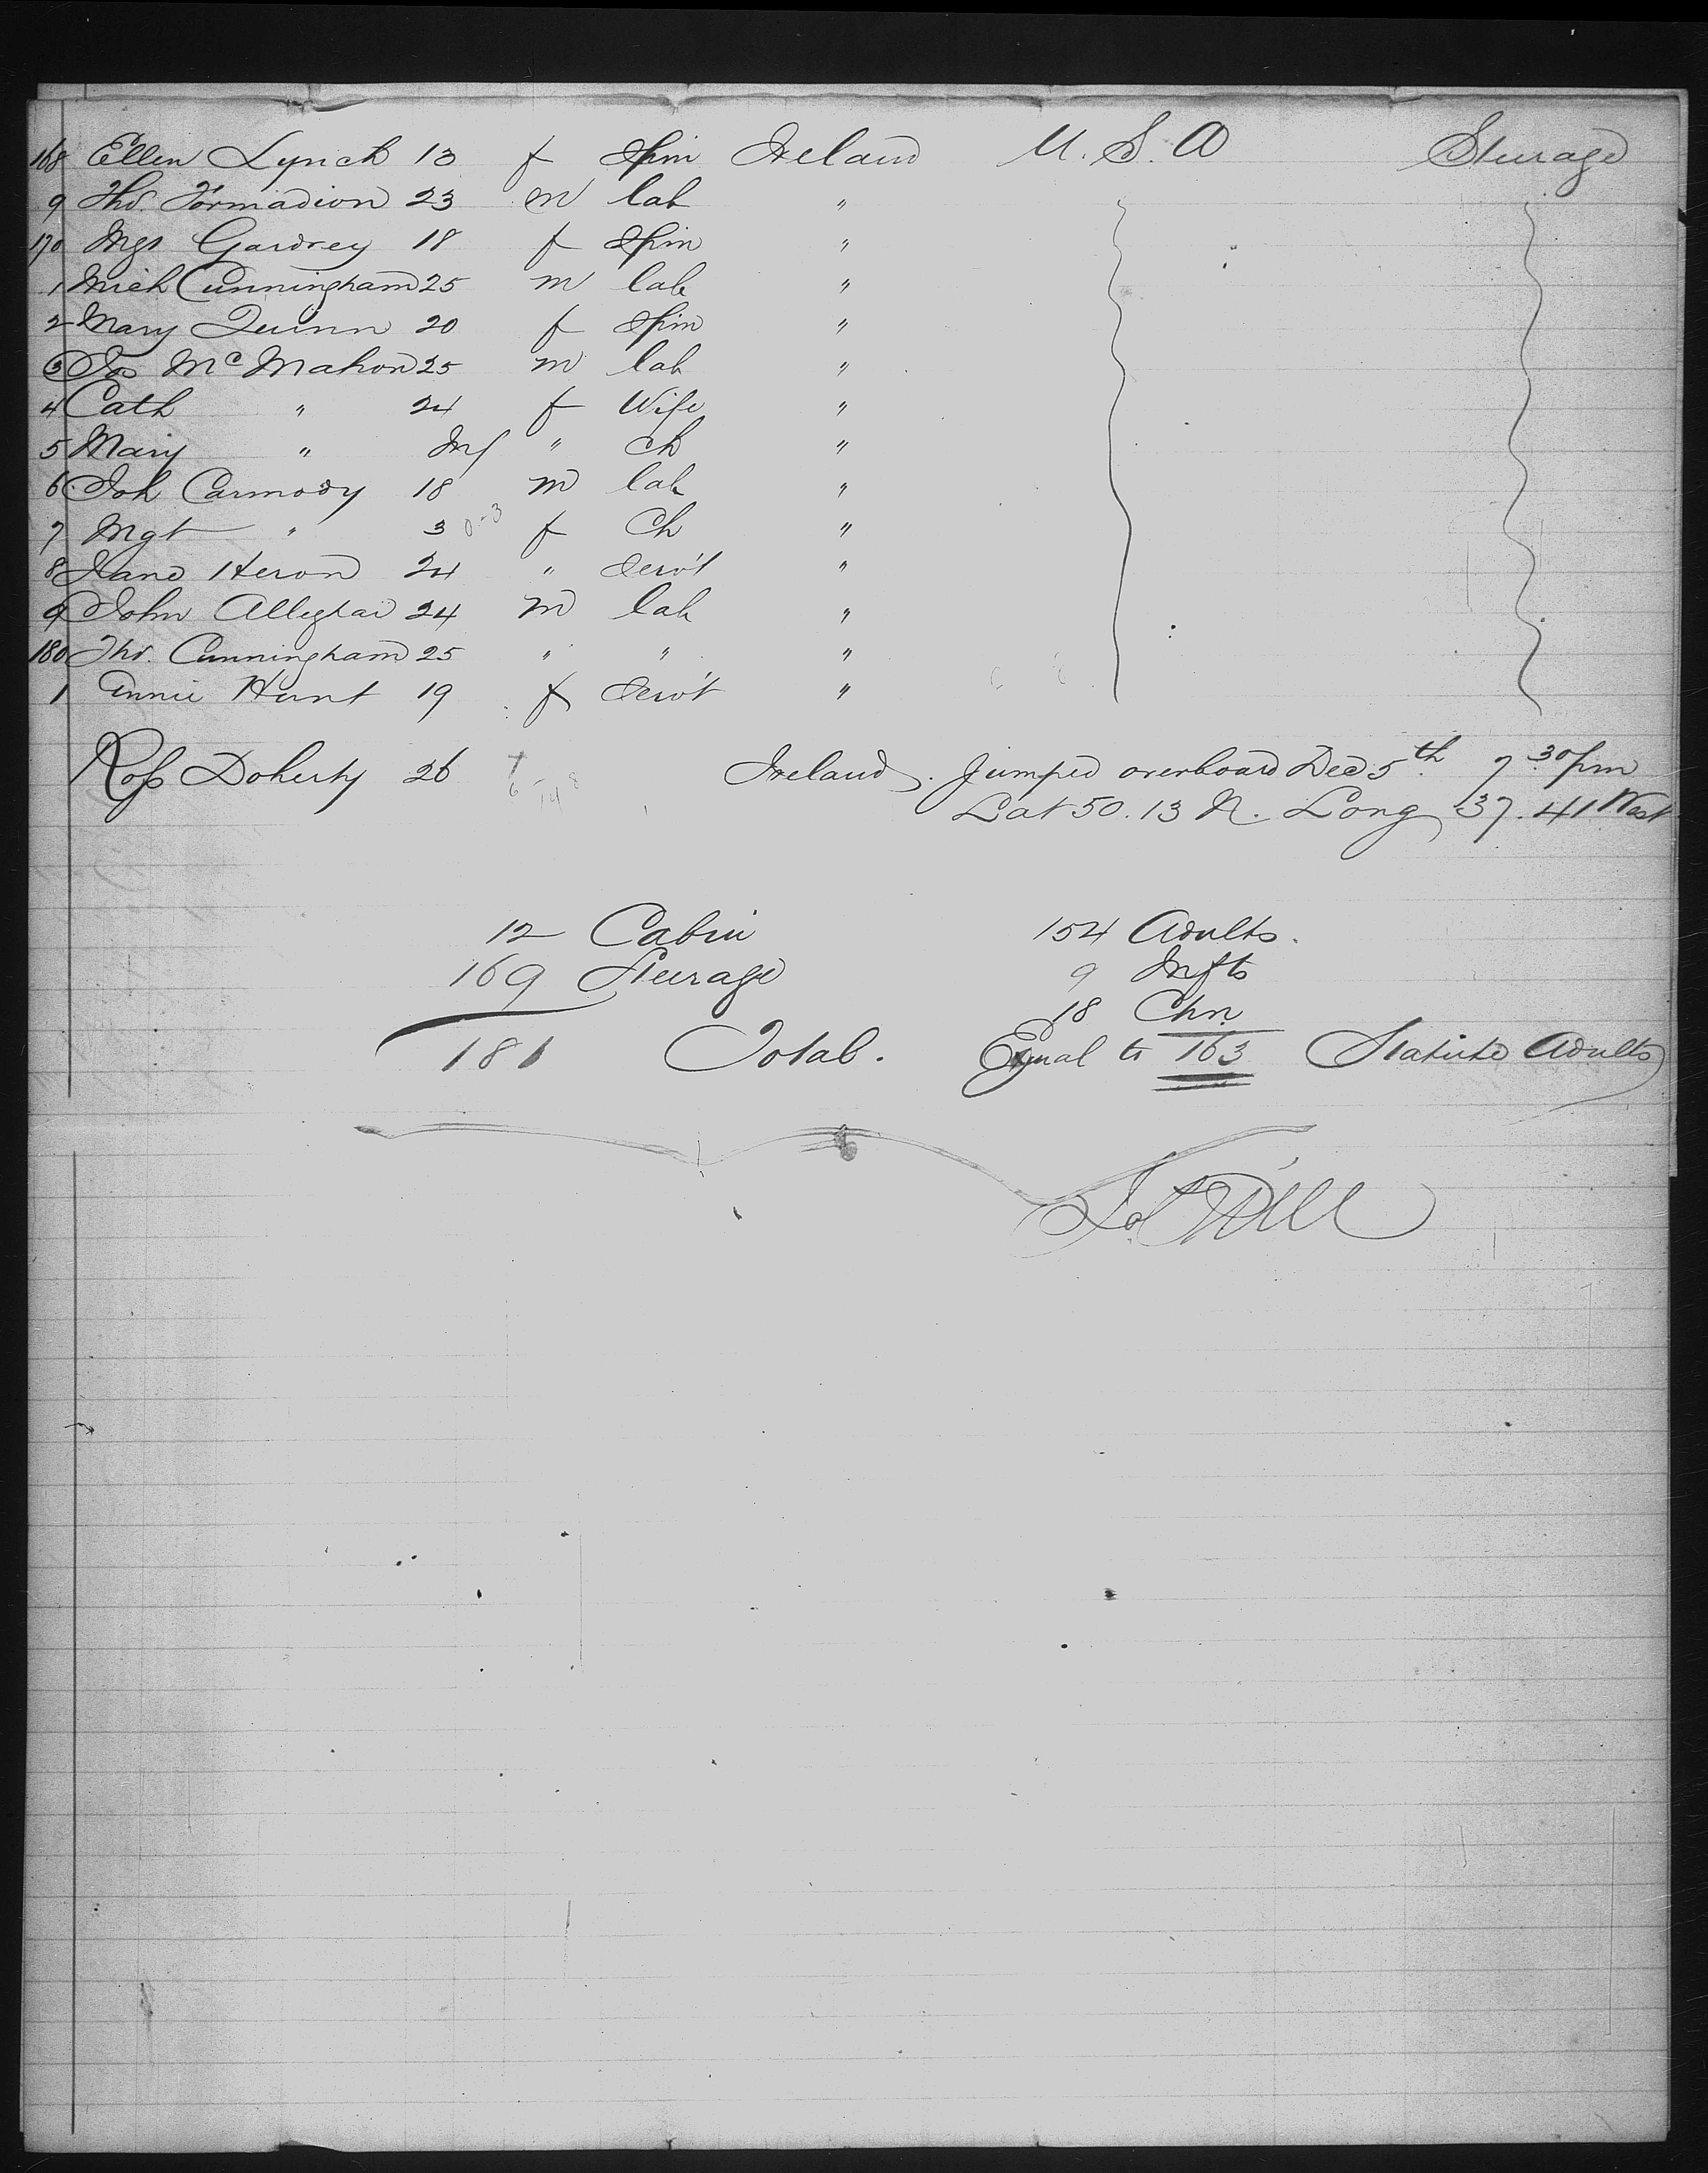 168 Ellen Lynch 13 f Spin Ireland U.S.A Steerage
9 Thos. Formadion 23 m lab "
170 Mgt Gardrey 18 f Spin "
1 Mich Cunningham 25 m lab "
2 Mary Quinn 20 f Spin "
3 Jos McMahon 25 m lab "
4 Cath " 24 f Wife "
5 Mary " Inf " ch "
6 Joh Carmody 18 m lab "
7 Mgt " 3 0-3 f Ch "
8 Jane Heron 24 " Serv't "
9 John Alleghai 24 m lab "
180 Thos. Cunningham 25 " " "
1 Annie Hunt 19 f Serv't "
Ross Doherty 26 Ireland. Jumped overboard Dec 5th. 7 30 pm
Lat 50.13 N. Long 37.41 West
12 Cabin 154 Adults.
169 Steerage 9 Infts
18 Chn.
181 Total. Equal to 163 Statute Adults